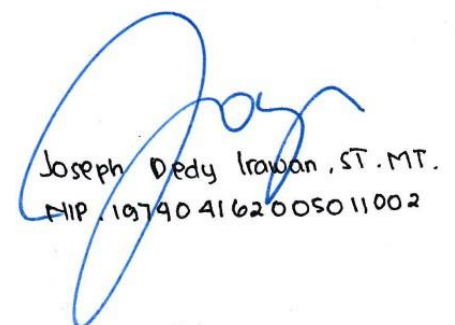 Joseph Dedy Irawan, ST. MT.
NIP. 197404162005011002